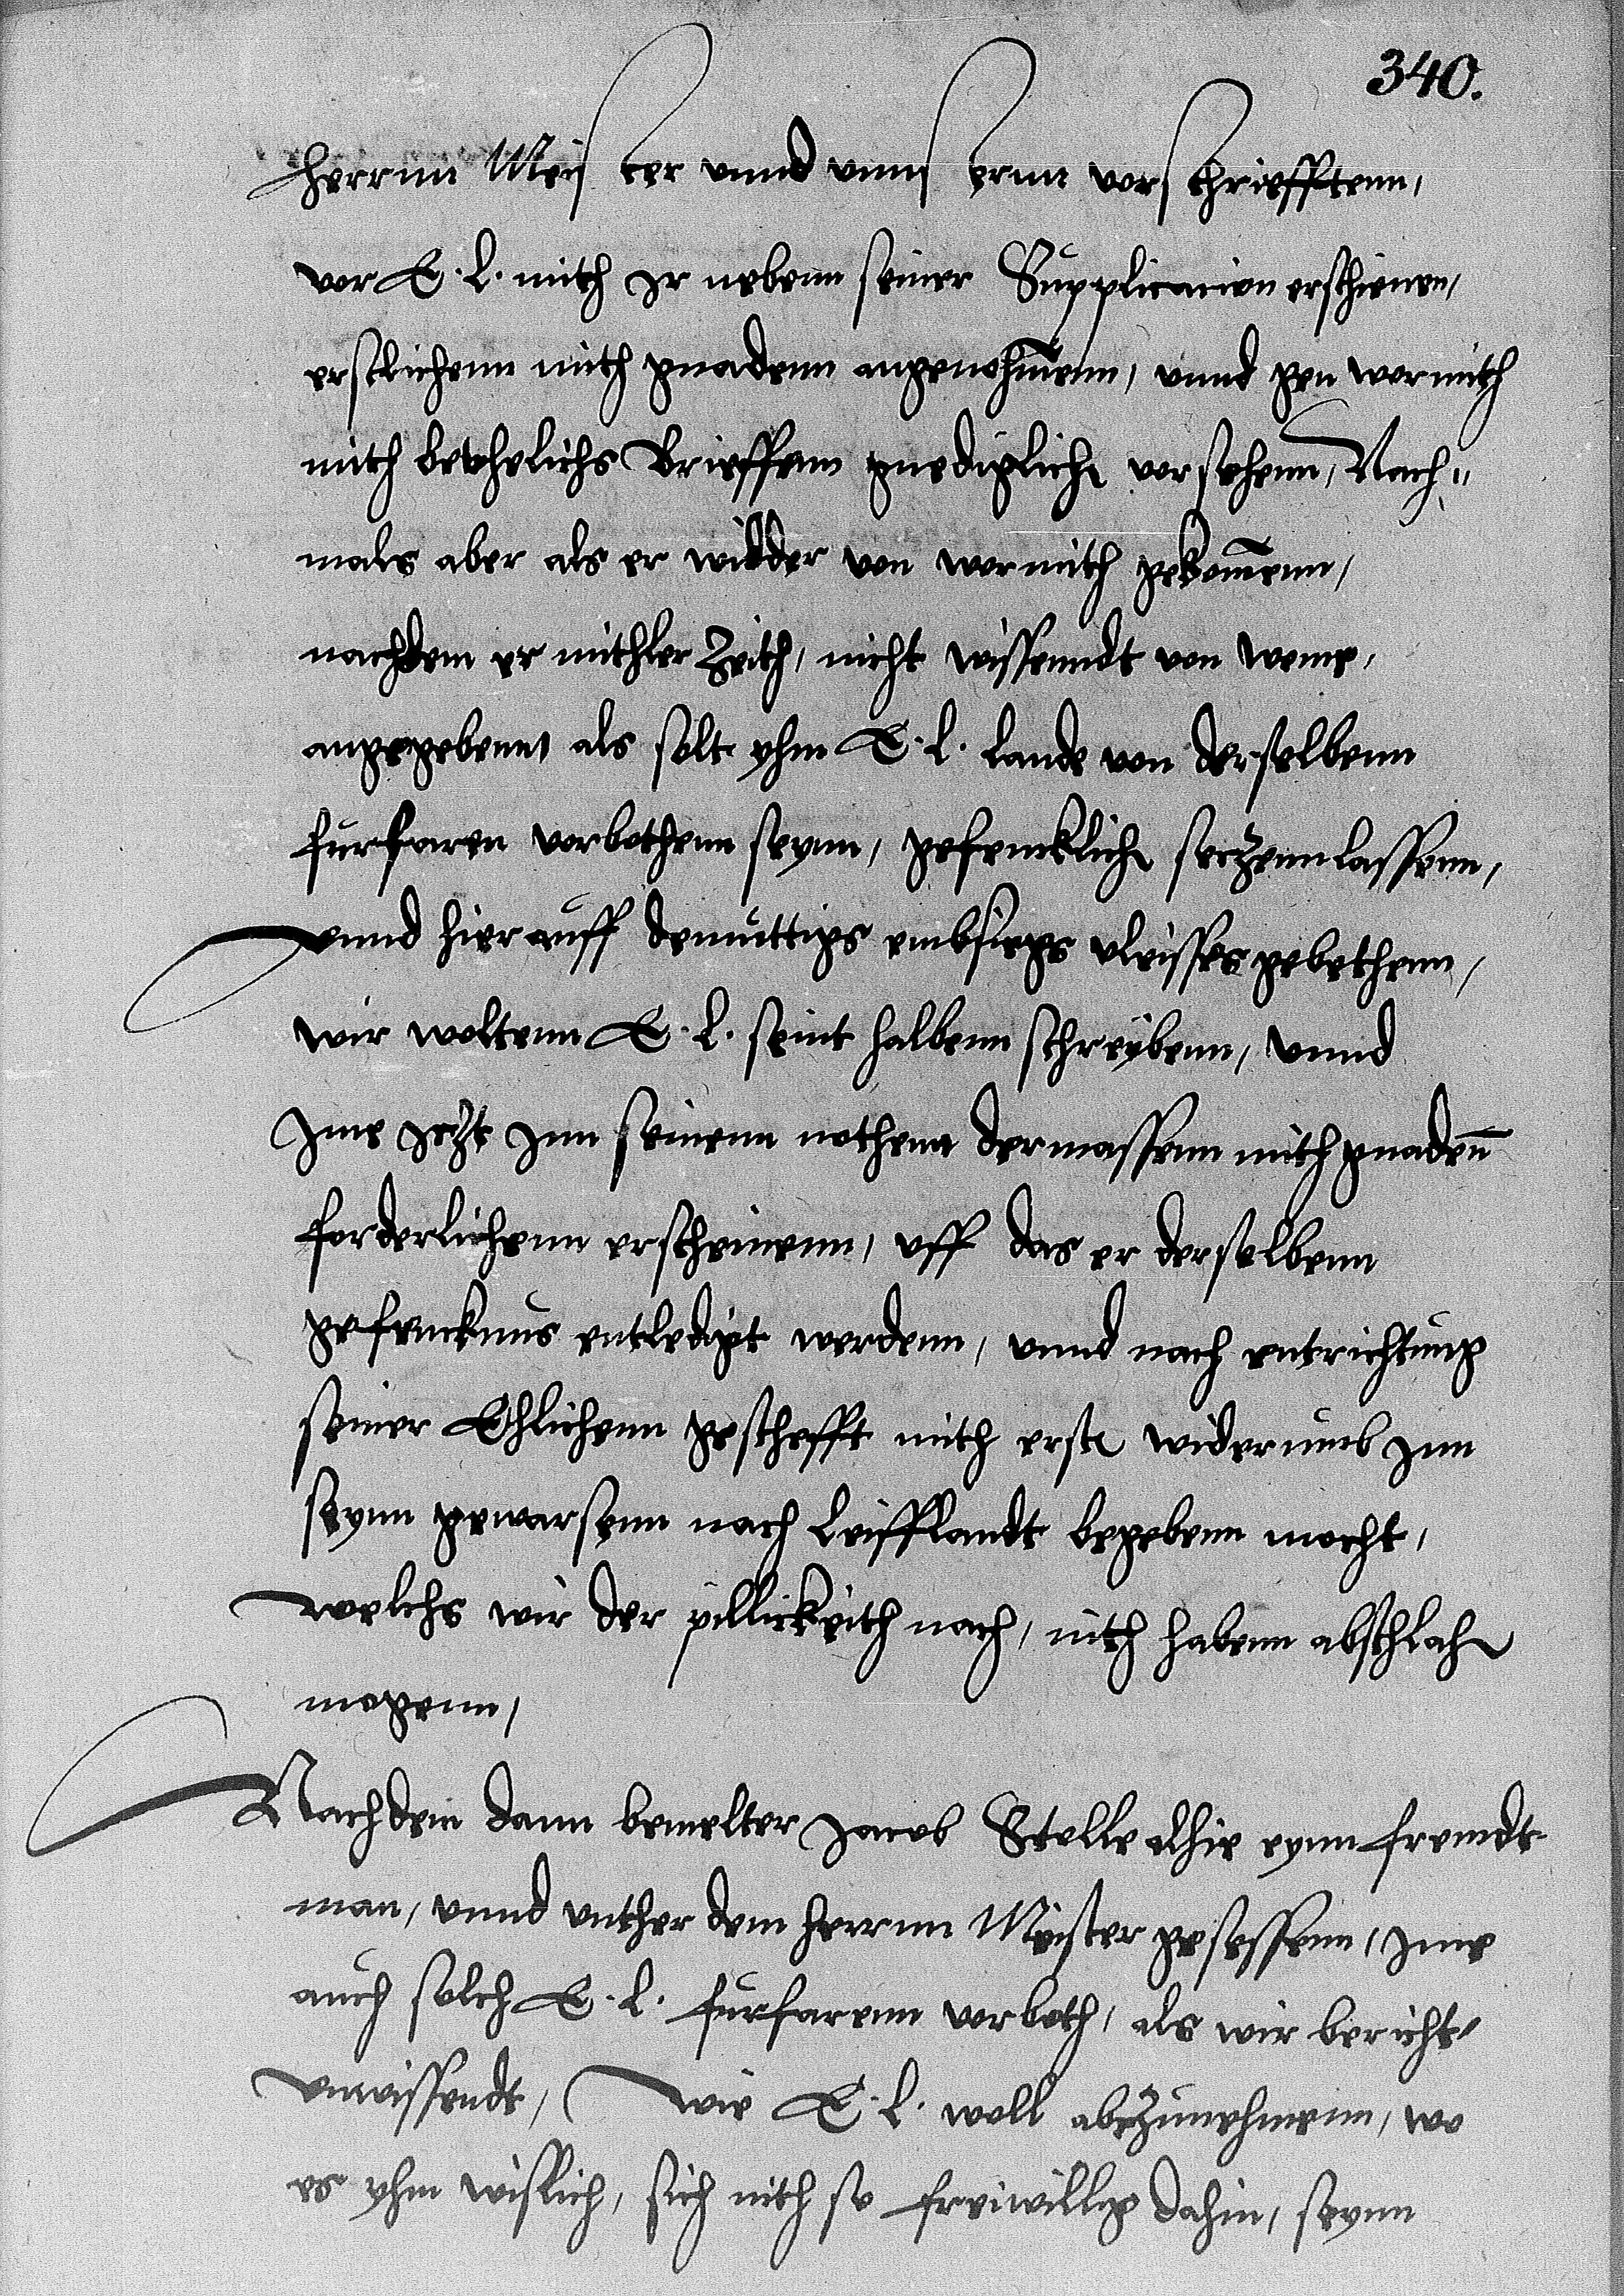 340.
Herrnn Meister vnnd vnnsernn vorschriefftenn,
vor E. L. mith Ir nebenn seiner Supplication erschienen,
erstlichenn mith gnadenn angenohmenn, vnnd gen wormith
mith bevhelichs Brieffenn gnediglich vorsehenn, Nach-
mals aber als er widder von wormith gekomenn,
nachdem er mithler Zeith, nicht wissenndt von weme,
angegebenn, als solt yhm E. L. Lande von derselbenn
furfaren vorbothenn seynn, gefencklich setzenn lassenn,
vnnd hierauff demuttigs embsiegs vleisses gebethenn,
wir woltenn E. L. seint halbenn schreybenn, vnnd
Ime Itzt Inn seinenn nothenn dermassenn mith gnadenn
forderlichenn erscheinenn, vff das er derselbenn
gefencknus entledigt werdenn, vnnd nach entrichtung
seiner Ehlichenn geschefft mith erste widerumb Inn
seynn gewarsenn nach Leifflandt begebenn mocht,
welchs wir der pillickeith nach, nith habenn abschlahen
mogenn,
Nachdem dann bemelter Jacob Stolle alhie eynn fremdt
man, vnnd vnther dem herrnn Meister gesessenn, Ime
auch solch E. L. furfarenn vorboth, als wir bericht,
vnwissendt, wie E. L. woll abzunehmenn, wo
es yhm wislich, sich nith so freiwillig dahin, seynn